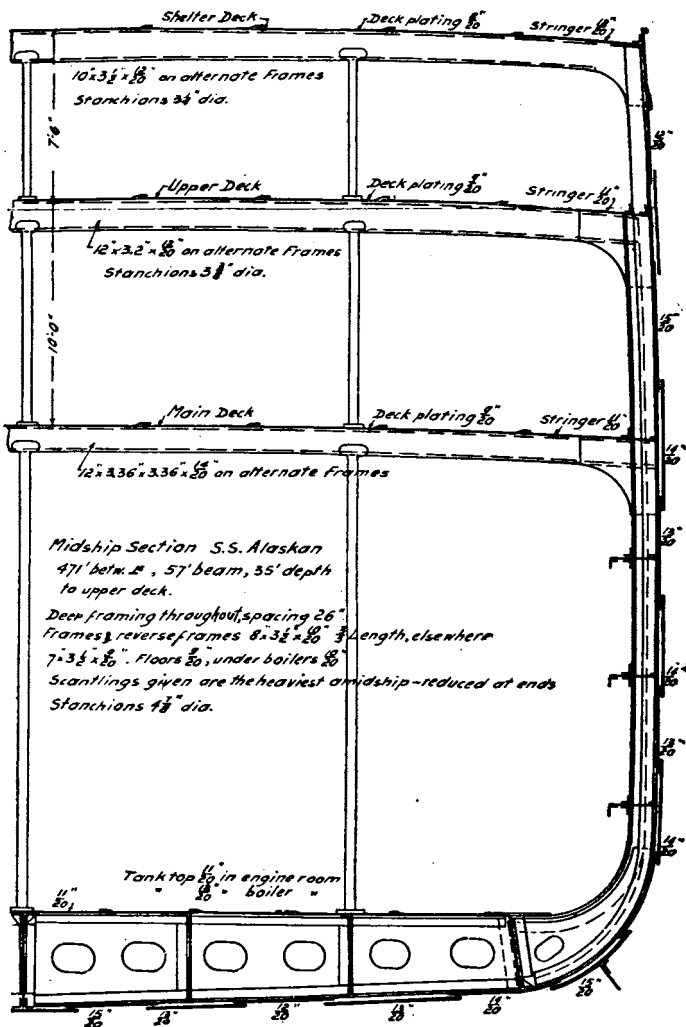 Shelter Deck
Deck plating 8/20"
Stringer
10" x 3 1/2" x on alternate Frames
Stanchions dia.
7'-6"
Upper Deck
Deck plating 9/20"
Stringer 11/20"
12" x 3.2" x on alternate Frames
Stanchions 3 dia.
10'-0"
Main Deck
Deck plating 9/20"
Stringer 11/20"
12" x 3.36" x 3.36" x 14/20" on alternate Frames
Midship Section S.S. Alaskan
471' betw. , 57' beam, 35' depth
to upper deck.
Deep framing throughout, spacing 26"
Frames & reverse frames 8" x 3 1/2" x Length, elsewhere
7" x 3 1/2" x . Floors , under boilers
Scantlings given are the heaviest amidship - reduced at ends
Stanchions 4 7/8" dia.
Tank top 11/20" in engine room
" " boiler "
11/20"
15/20"
14/20"
13/20"
14/20"
13/20"
14/20"
15/20"
15/20"
13/20"